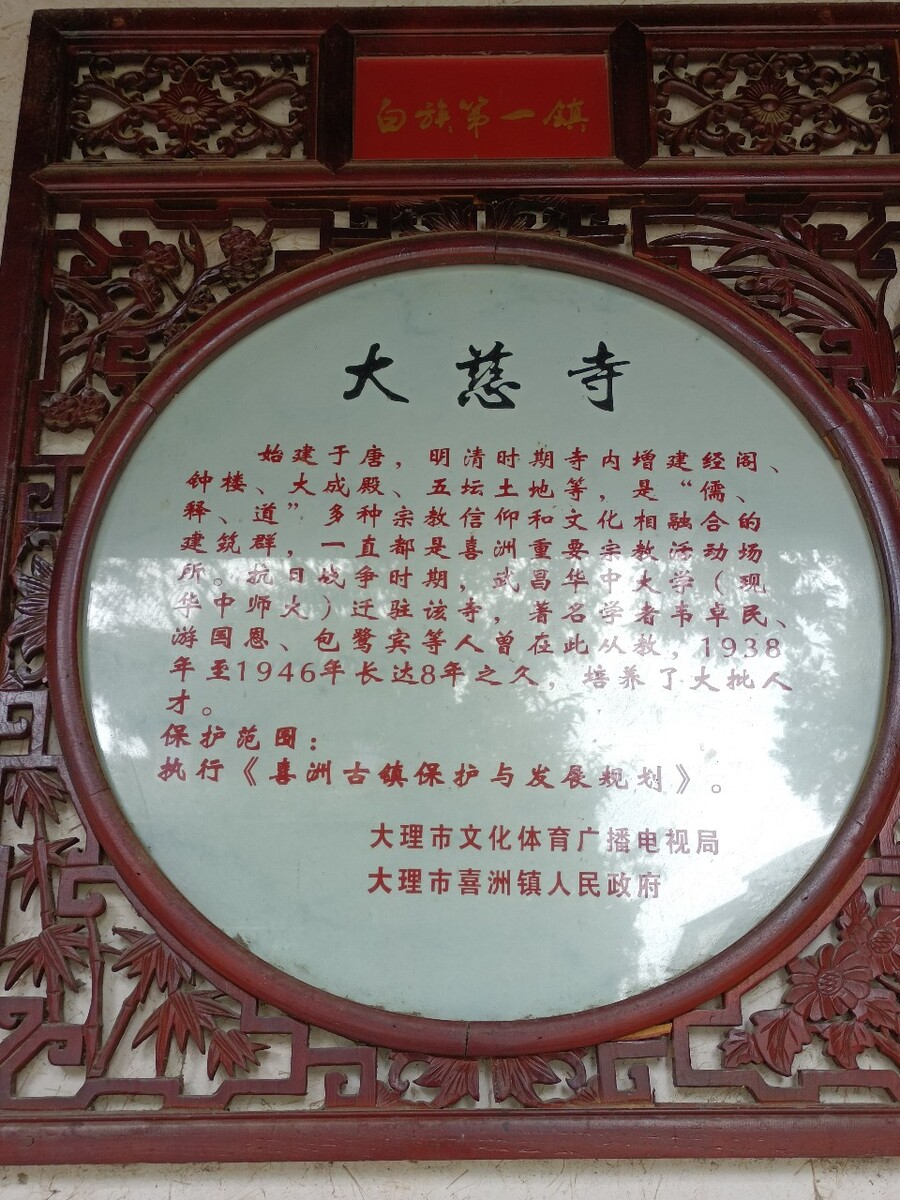 白族第一镇
大慈寺
始建于唐，明清时期寺内增建经阁、
钟楼、大成殿、五坛土地等，是“儒、
释、道”多种宗教信仰和文化相融合的
建筑群，一直都是喜洲重要宗教活动场
所。抗日战争时期，武昌华中大学（现
华中师大）迁驻该寺，著名学者韦卓民、
游国恩、包鹭宾等人曾在此从教，1938
年至1946年长达8年之久，培养了大批人
才。
保护范围：
执行《喜洲古镇保护与发展规划》。
大理市文化体育广播电视局
大理市喜洲镇人民政府